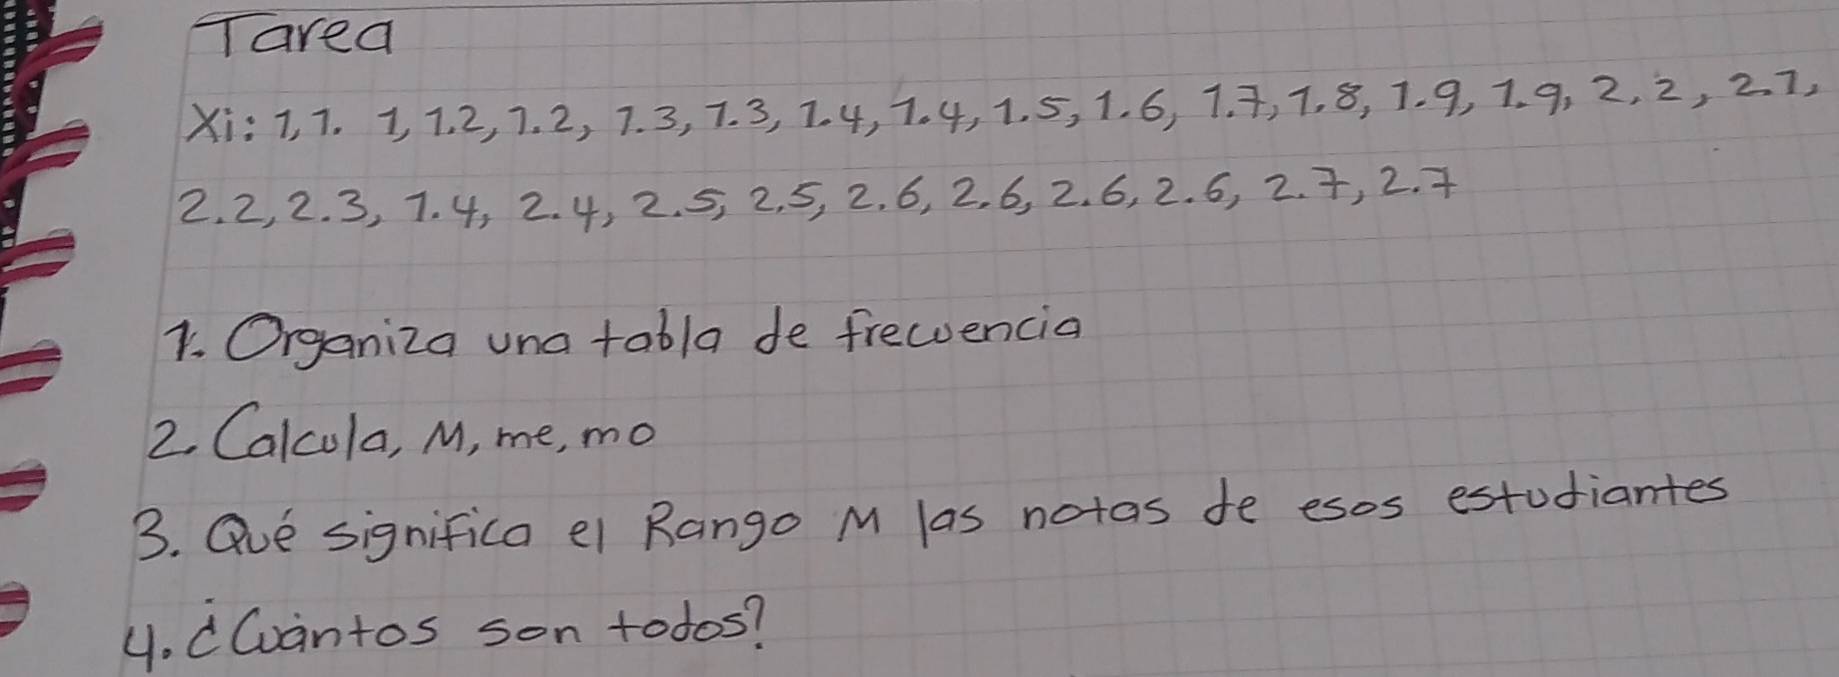 Tarea
Xi: 1, 1. 1, 1.2, 1.2, 1.3, 1.3, 1.4, 1.4, 1.5, 1.6, 1.7, 1.8, 1.9, 1.9, 2, 2, 2.1,
2.2, 2.3, 1.4, 2.4, 2.5, 2.5, 2.6, 2.6, 2.6, 2.6, 2.7, 2.7
1. Organiza una tabla de frecuencia
2. Calcula, M, me, mo
3. Qué significa el Rango M las notas de esos estudiantes
4. ¿Cuántos son todos?